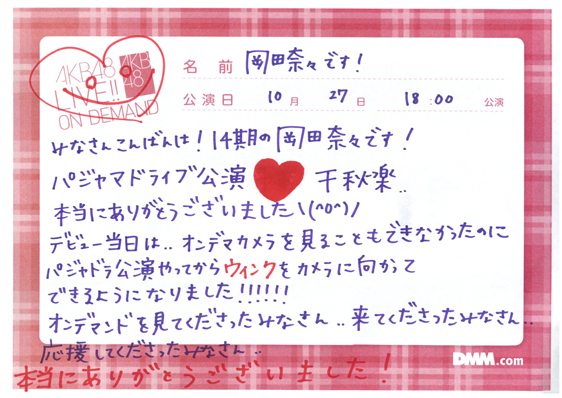 AKB48
LIVE!!
ON DEMAND
AKB
48
名前 岡田奈々です!
公演日 10月 27日 18:00 公演
みなさんこんばんは! 14期の岡田奈々です!
パジャマドライブ公演 ♥ 千秋楽..
本当にありがとうございました\(^o^)/
デビュー当日は..オンデマカメラを見ることもできなかったのに
パジャドラ公演やってからウィンクをカメラに向かって
できるようになりました!!!!!!
オンデマンドを見てくださったみなさん..来てくださったみなさん..
応援してくださったみなさん..
本当にありがとうございました!
DMM.com